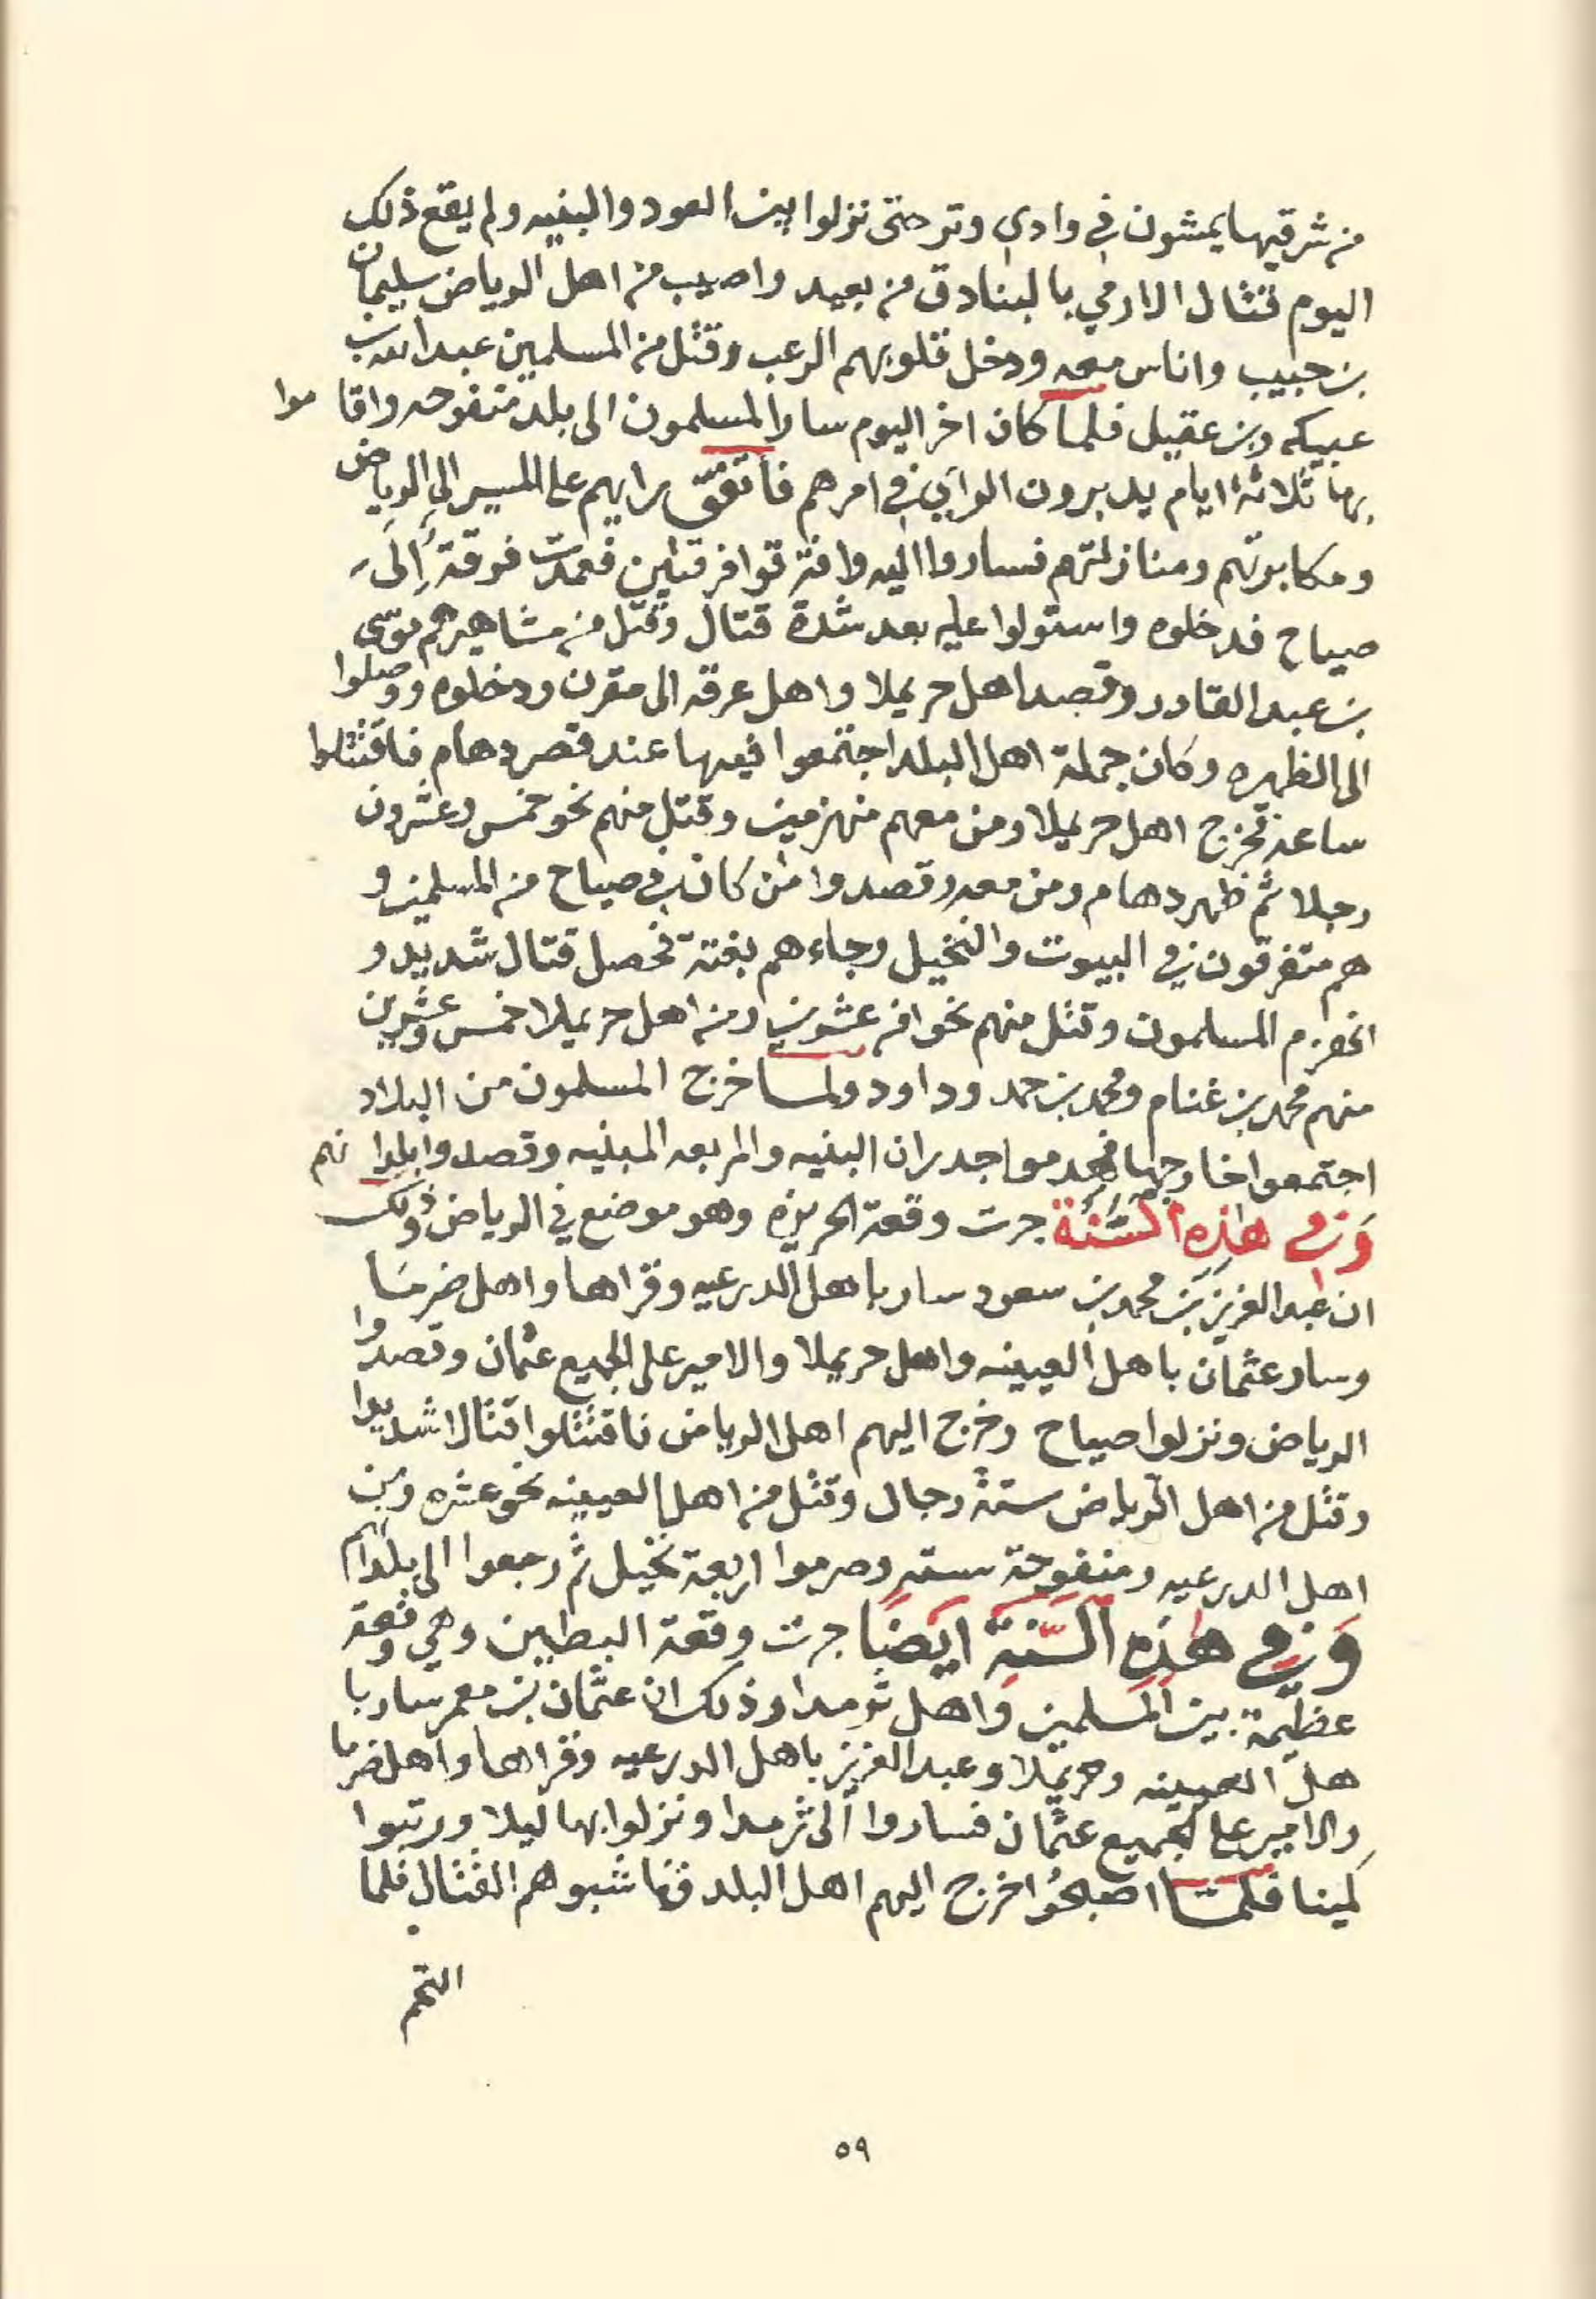 من شرقيها يمشون في وادي وتر حتى نزلوا بين العود والبنيه ولم يقع ذلك
اليوم قتال الا رمي بالبنادق من بعيد واصيب من اهل الرياض سليمان
بن حبيب واناس معه ودخل قلوبهم الرعب وقتل من المسلمين عبدالله بن
عبيكه وبن عقيل فلما كان اخر اليوم سار المسلمون الى بلد منفوحه واقاموا
بها ثلاثة ايام يدبرون الراي في امرهم فأتفق رايهم على المسير الى الرياض
ومكابرتهم ومنازلتهم فساروا اليه وافترقوا فرقتين فعمدت فرقة إلى
صياح فدخلوه واستولوا عليه بعد شدة قتال وقتل من مشاهيرهم موسى
بن عبدالقادر وقصد اهل حريملا واهل عرقه الى مقرن ودخلوه ووصلوا
الى الظهره وكان جملة اهل البلد اجتمعوا فيها عند قصر دهام فاقتتلوا
ساعة فخرج اهل حريملا ومن معهم منهزمين وقتل منهم نحو خمس وعشرون
رجلا ثم ظهر دهام ومن معه وقصدوا من كان في صياح من المسلمين و
هم متفرقون في البيوت والنخيل وجاءهم بغتة فحصل قتال شديد و
انهزم المسلمون وقتل منهم نحوا من عشرين ومن اهل حريملا خمس وعشرين
منهم محمد بن غنام ومحمد بن حمد وداود ولما خرج المسلمون من البلاد
اجتمعوا خارجها فهدموا جدران البنيه والمربعه المبنيه وقصدوا بلدانهم
وَفي هذِهِ السَّنَة جرت وقعة الحريزه وهو موضع في الرياض وذلك
ان عبدالعزيز بن محمد بن سعود سار باهل الدرعيه وقراها واهل ضرما
وسار عثمان باهل العيينه واهل حريملا والامير على الجميع عثمان وقصدوا
الرياض ونزلوا صياح وخرج اليهم اهل الرياض فاقتتلوا قتالا شديدا
وقتل من اهل الرياض ستة رجال وقتل من اهل العيينه نحو عشره ومن
اهل الدرعيه ومنفوحة سته وصرموا اربعة نخيل ثم رجعوا الى بلدانهم
وَفي هذِهِ السَّنَةِ ايَضًا جرت وقعة البطين وهي وقعة
عظيمة بين المسلمين واهل ثرمدا وذلك ان عثمان بن معمر سار با
هل العيينه وحريملا وعبدالعزيز باهل الدرعيه وقراها واهل ضرما
والامير على الجميع عثمان فساروا الى ثرمدا ونزلوا بها ليلا ورتبوا
كمينا فلما اصبحوا خرج اليهم اهل البلد فناشبوهم القتال فلما
التحم
٥٩